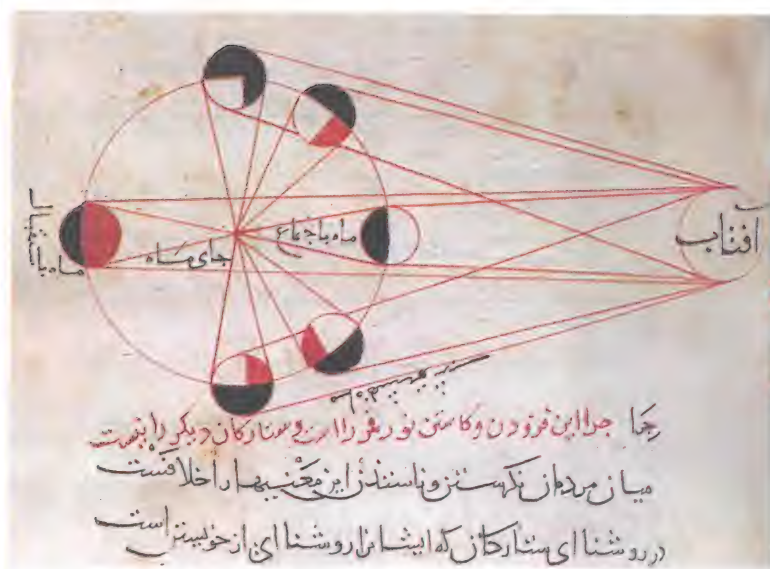 افتاب
ماه باجتماع
جای ماه
ماه باستقبال
چرا این فزودن و کاستن نور قمر را است و ستارکان دیکر را نیست
میان مردمان نکرستن و باسندن این معنیها را خلافست
در روشنای ستارکان که ایشانرا روشنای از خویشتن است